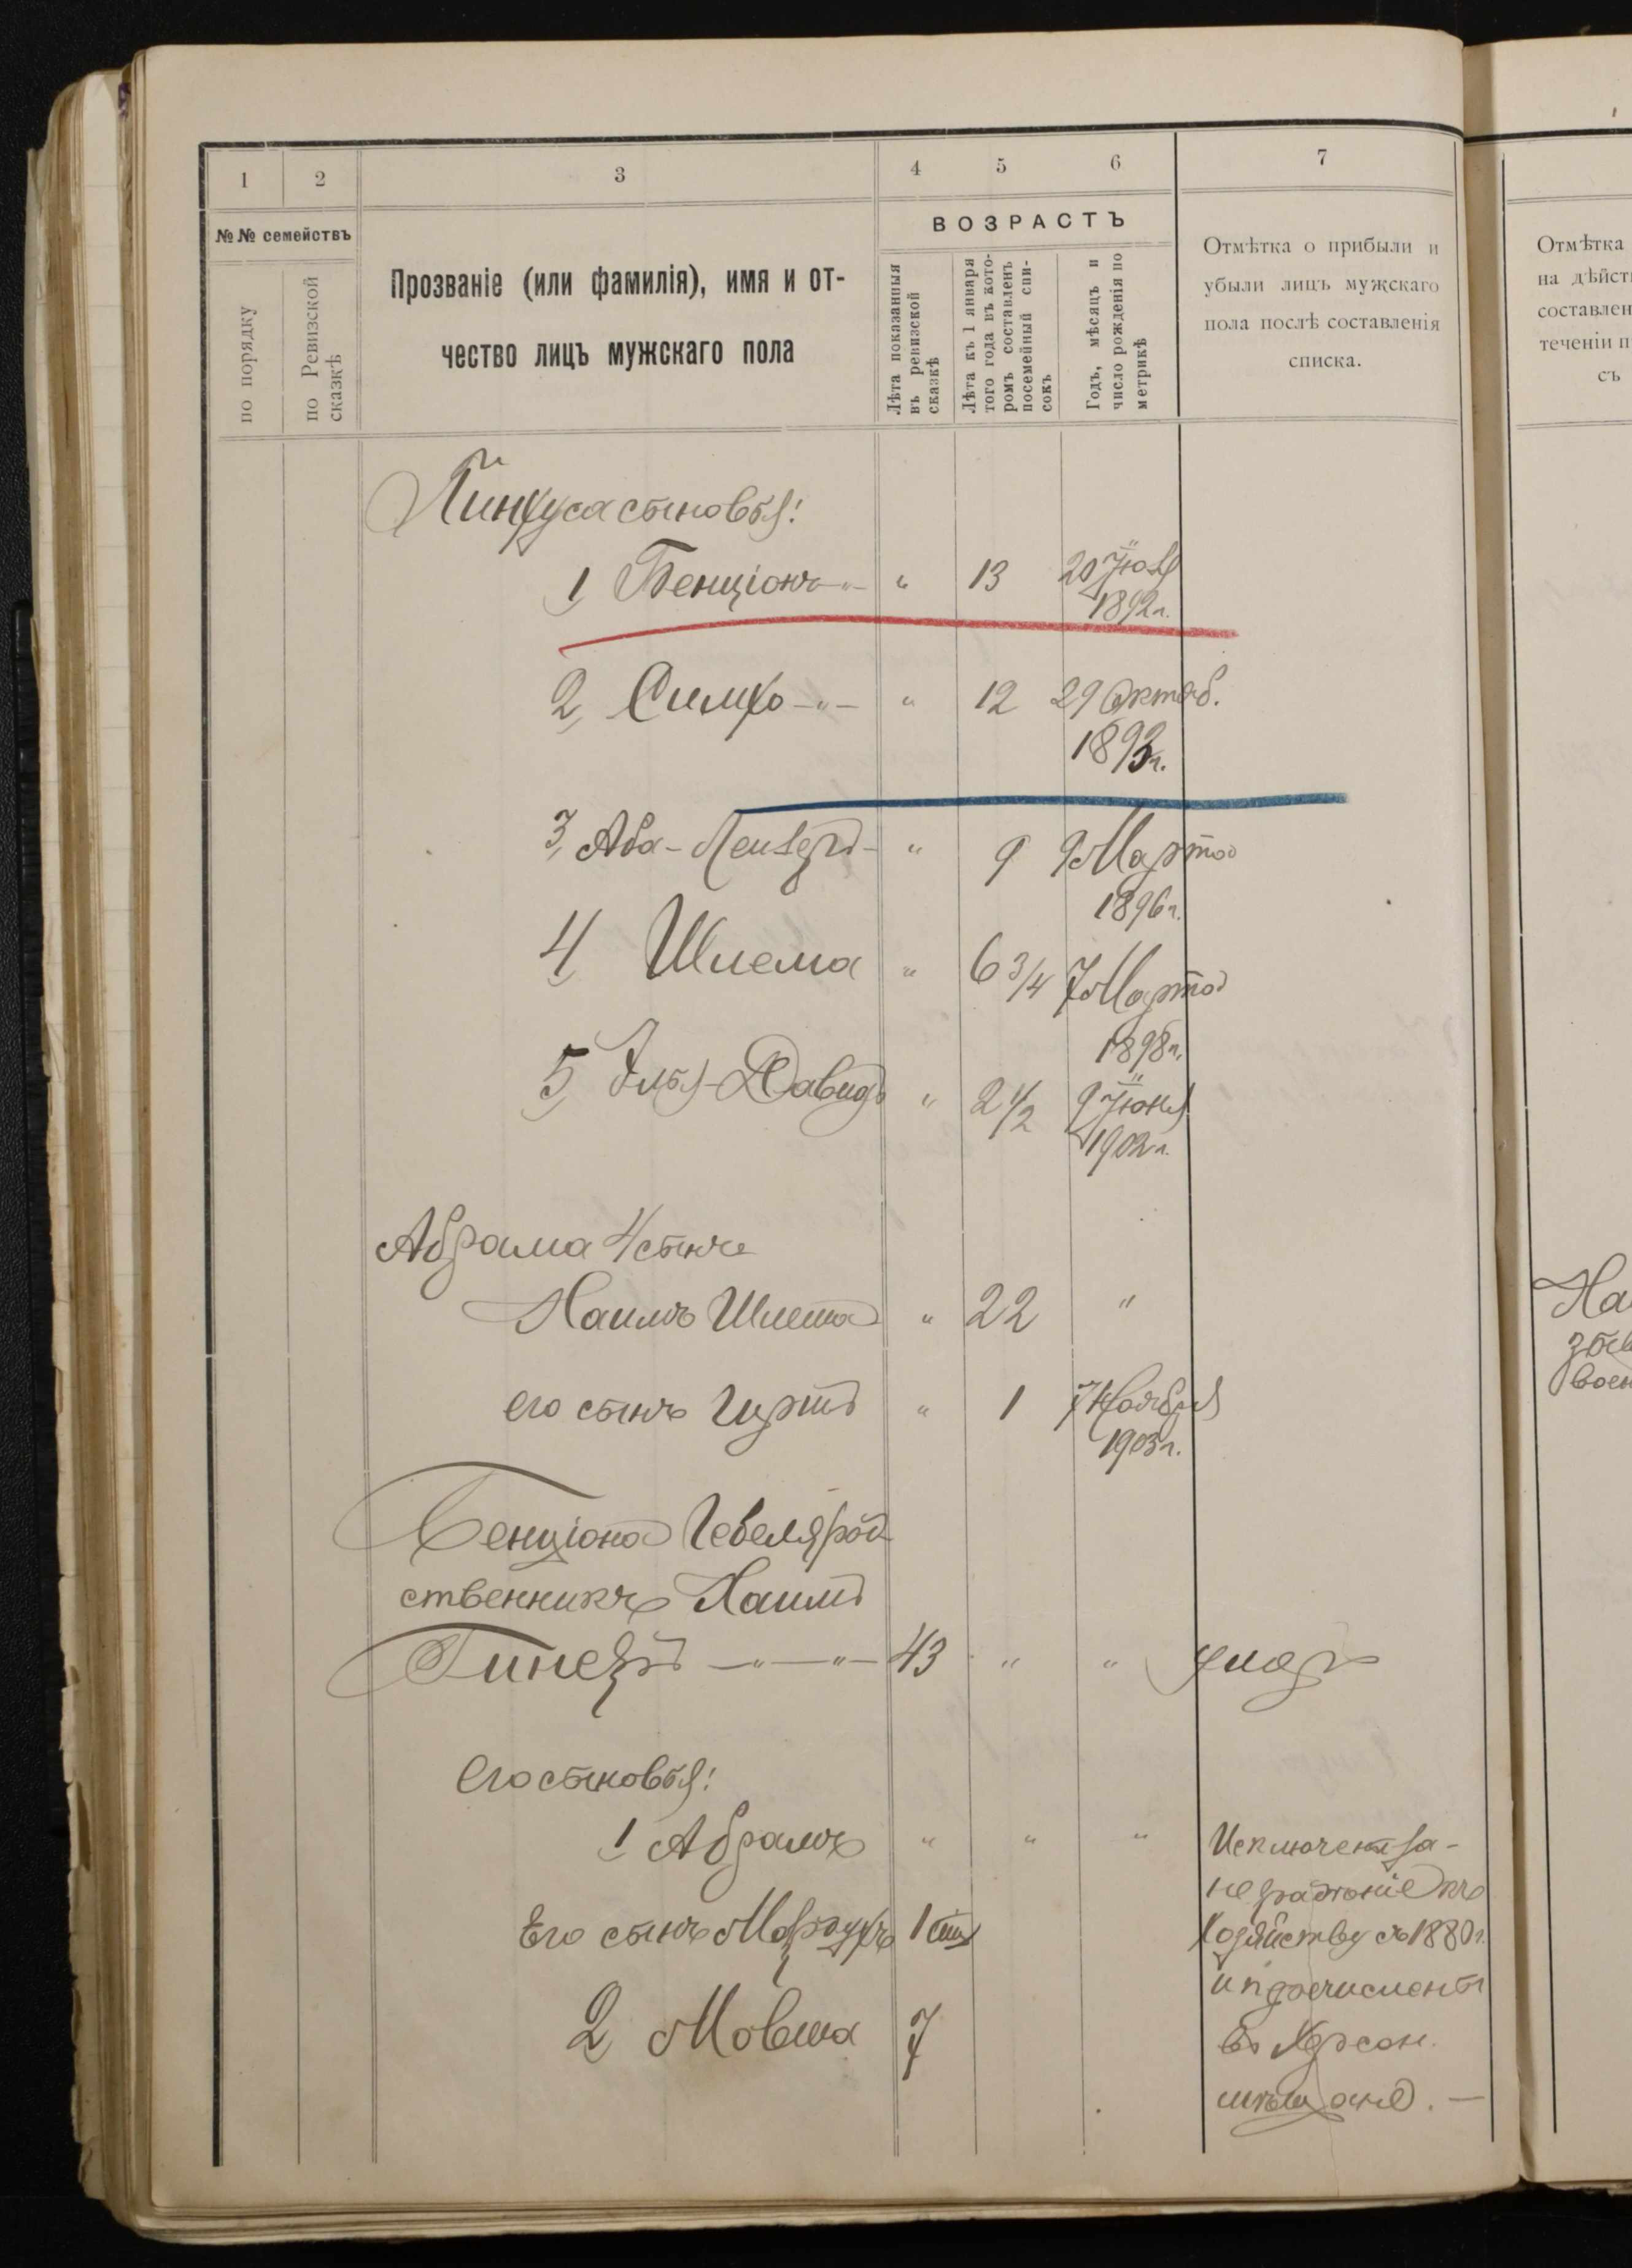 1 2 3 4 5 6 7
№№ семействъ
по порядку
по Ревизской
сказкѣ
Прозваніе (или фамилія), имя и от-
чество лицъ мужскаго пола
ВОЗРАСТЪ
Лѣта показанныя
въ ревизской
сказкѣ
Лѣта къ 1 января
того года въ кото-
ромъ составленъ
посемейный спи-
сокъ
Годъ, мѣсяцъ и
число рожденія по
метрикѣ
Отмѣтка о прибыли и
убыли лицъ мужскаго
пола послѣ составленія
списка.
Отмѣтка
на дѣйст
составлен
теченіи п
съ
Пинхуса сыновья:
1 Бенціонъ -"- " 13 20 Іюля
1892 г.
2 Симхо -"- " 12 29 Октяб.
1893 г.
3 Аба-Лейзеръ - " 9 9 Марта
1896 г.
4 Шлема " 6 3/4 7 Марта
1898 г.
5 Элья-Давидъ " 2 1/2 9 Іюня
1902 г.
Абрама 4 сынъ
Хаимъ Шлема " 22 "
его сынъ Гиршъ " 1 7 Ноября
1903 г.
Бенціона Гевеля род
ственникъ Хаимъ
Гинезръ -"-"- 43 " " умеръ
Его сыновья:
1 Абрамъ " " " Исключены за
нераденіе къ
Его сынъ Мордухъ 1 хозяйству съ 1880 г.
и прочислены
2 Мовша 7 въ Херсон.
мѣщане. -
На